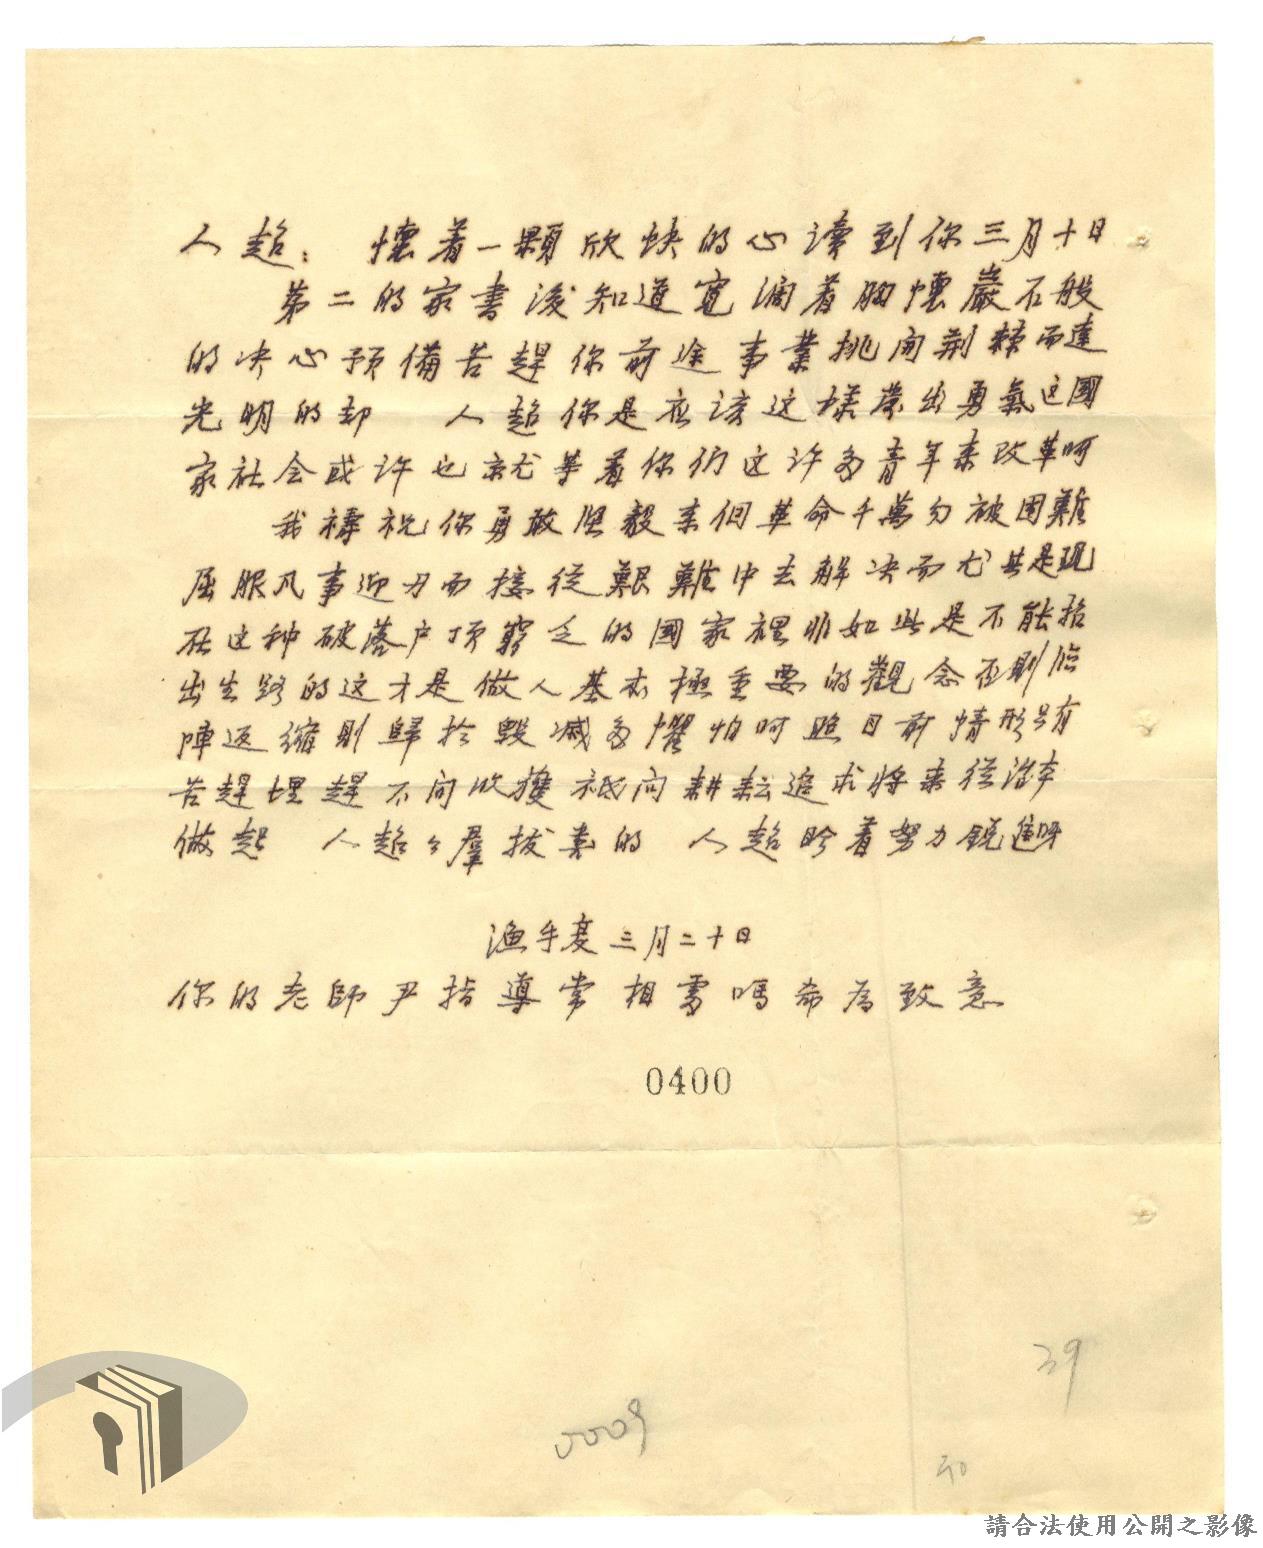 人超：　懷着一顆欣快的心讀到你三月十日
第二的家書後知道寬濶着胸懷巖石般
的决心預備苦趕你前途事業挑開荆棘而達
光明的却　人超你是应该这樣鼓出勇氣这國
家社会或许也就等着你们这许多青年来改革呵
我禱祝你勇敢坚毅来個革命千萬勿被困難
屈服凡事迎刃而接從艱難中去解决而尤其是現
在这种破落户顶窮乏的國家裡非如此是不能拾
出生路的这才是做人基本極重要的觀念否則临
陣返縮則歸於毀滅多懼怕呵照目前情形只有
苦趕埋趕不问收獲祗问耕耘追求將来從治本
做起　人超々羣拔萃的　人超盼着努力銳進呀
漁手复三月二十日
你的老師尹指導常相晤嗎希為致意
0400
39
0009
40
請合法使用公開之影像